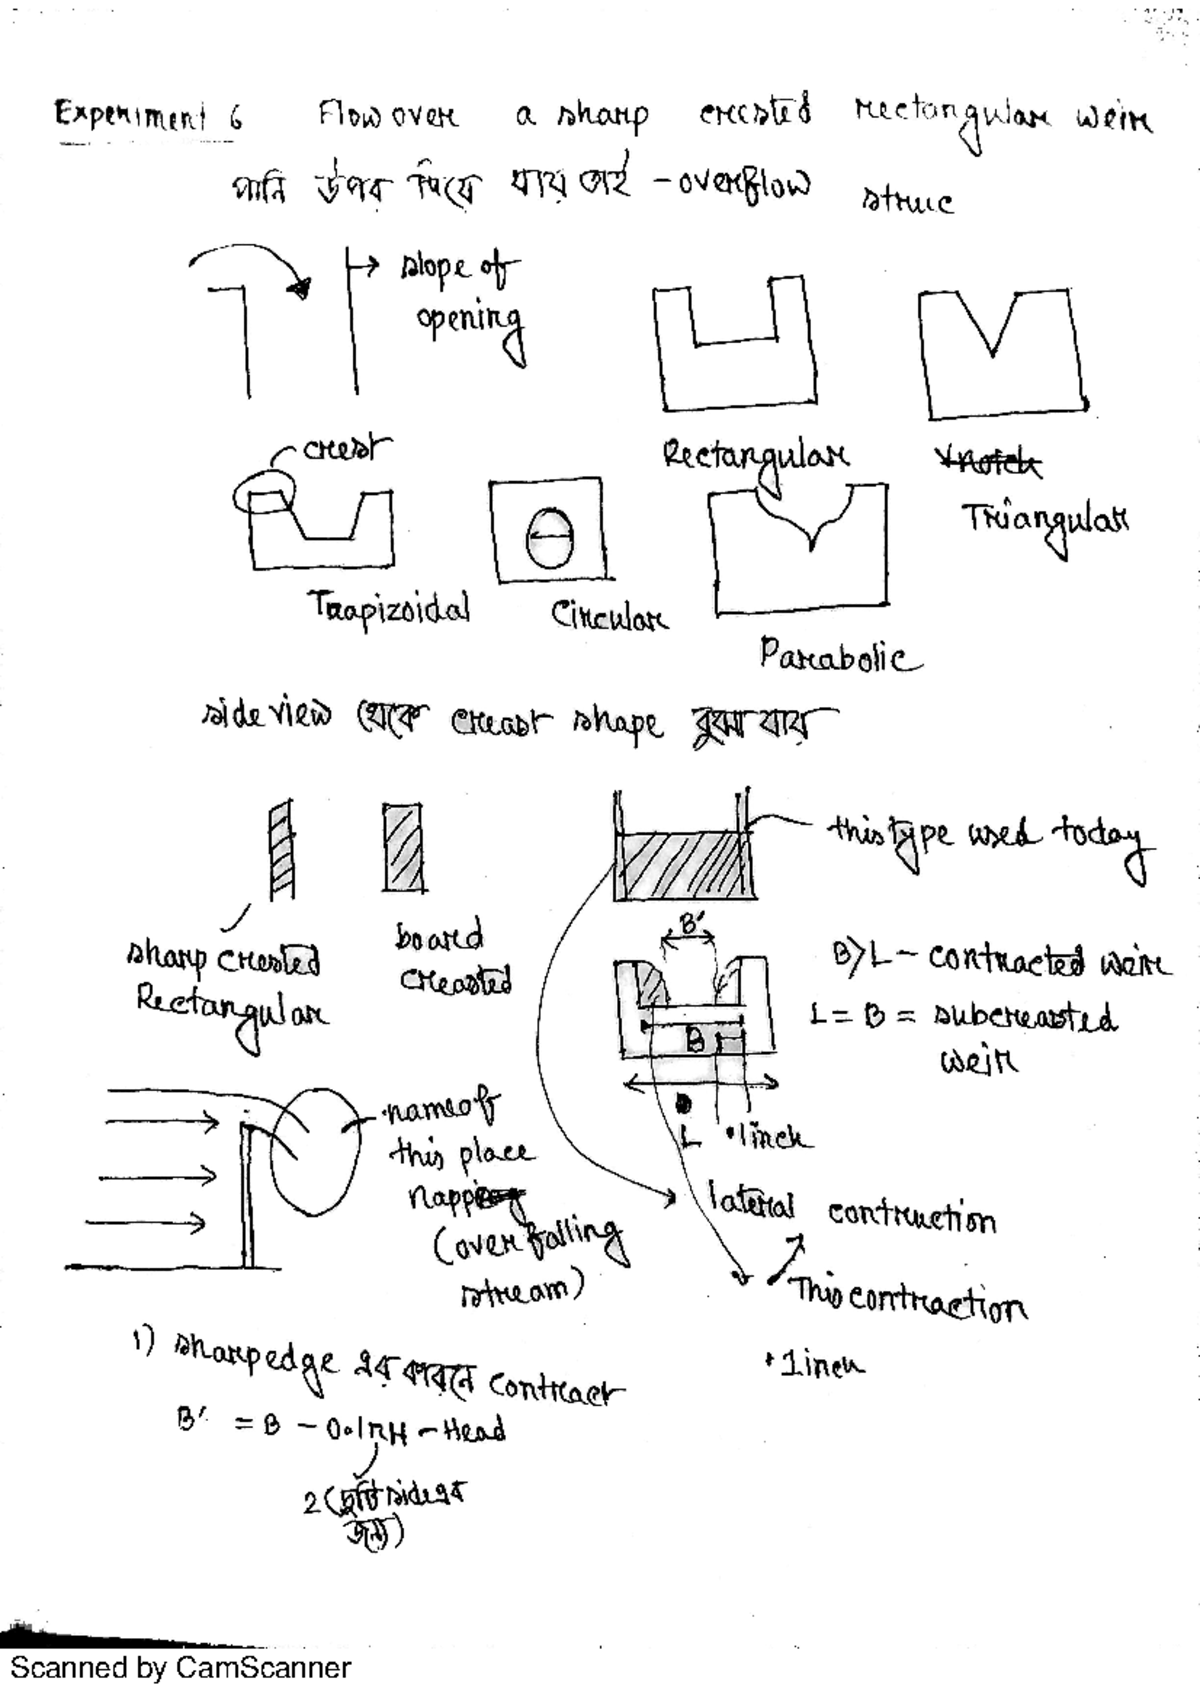 Experiment 6 Flow over a sharp crested rectangular weir
পানি উপর দিয়ে যায় তাই - overflow struc
slope of
opening
crest
Rectangular
Vnotch
Triangular
Trapizoidal
Circular
Parabolic
side view থেকে creast shape বুঝা যায়
this type used today
sharp crested
Rectangular
board
creasted
B'
B
L
1 inch
B>L - contracted weir
L = B = subcreasted
weir
name of
this place
napping
(over falling
stream)
lateral contruction
This contraction
1 inch
1) sharp edge এর কারনে contract
B' = B - 0.1nH - Head
2 (দুটি side এর
জন্য)
Scanned by CamScanner